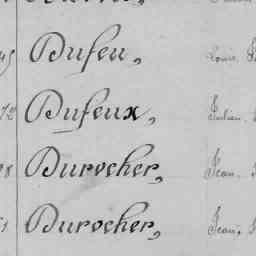 Dufeu, Louis
72 Dufeux, Julien
Durocher, Jean
Durocher, Jean